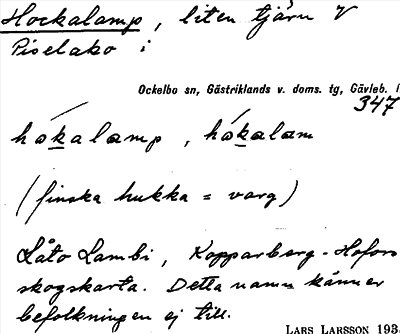 Hockalamp, liten tjärn V
Piselako i
Ockelbo sn, Gästriklands v. doms. tg, Gävleb. l
347
håkalamp, håkalam
(finska hukka = varg)
Låto Lambi, Kopparberg-Hofors
skogskarta. Detta namn känner
befolkningen ej till.
LARS LARSSON 193